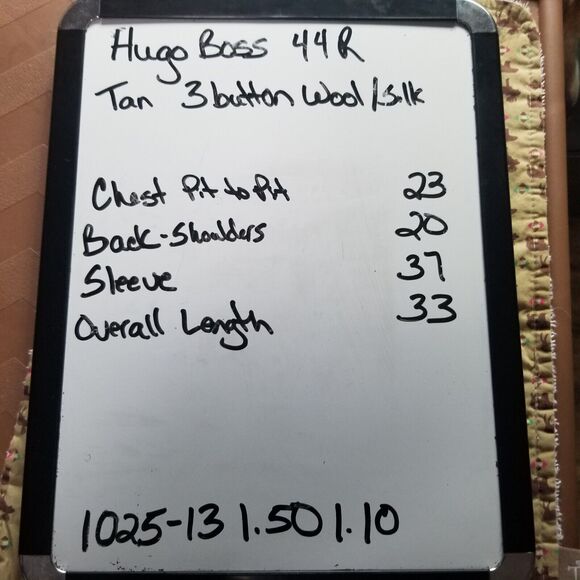 Hugo Boss 44R
Tan 3 button Wool/Silk
Chest Pit to Pit 23
Back-Shoulders 20
Sleeve 37
Overall Length 33
1025-13 1.50 1.10